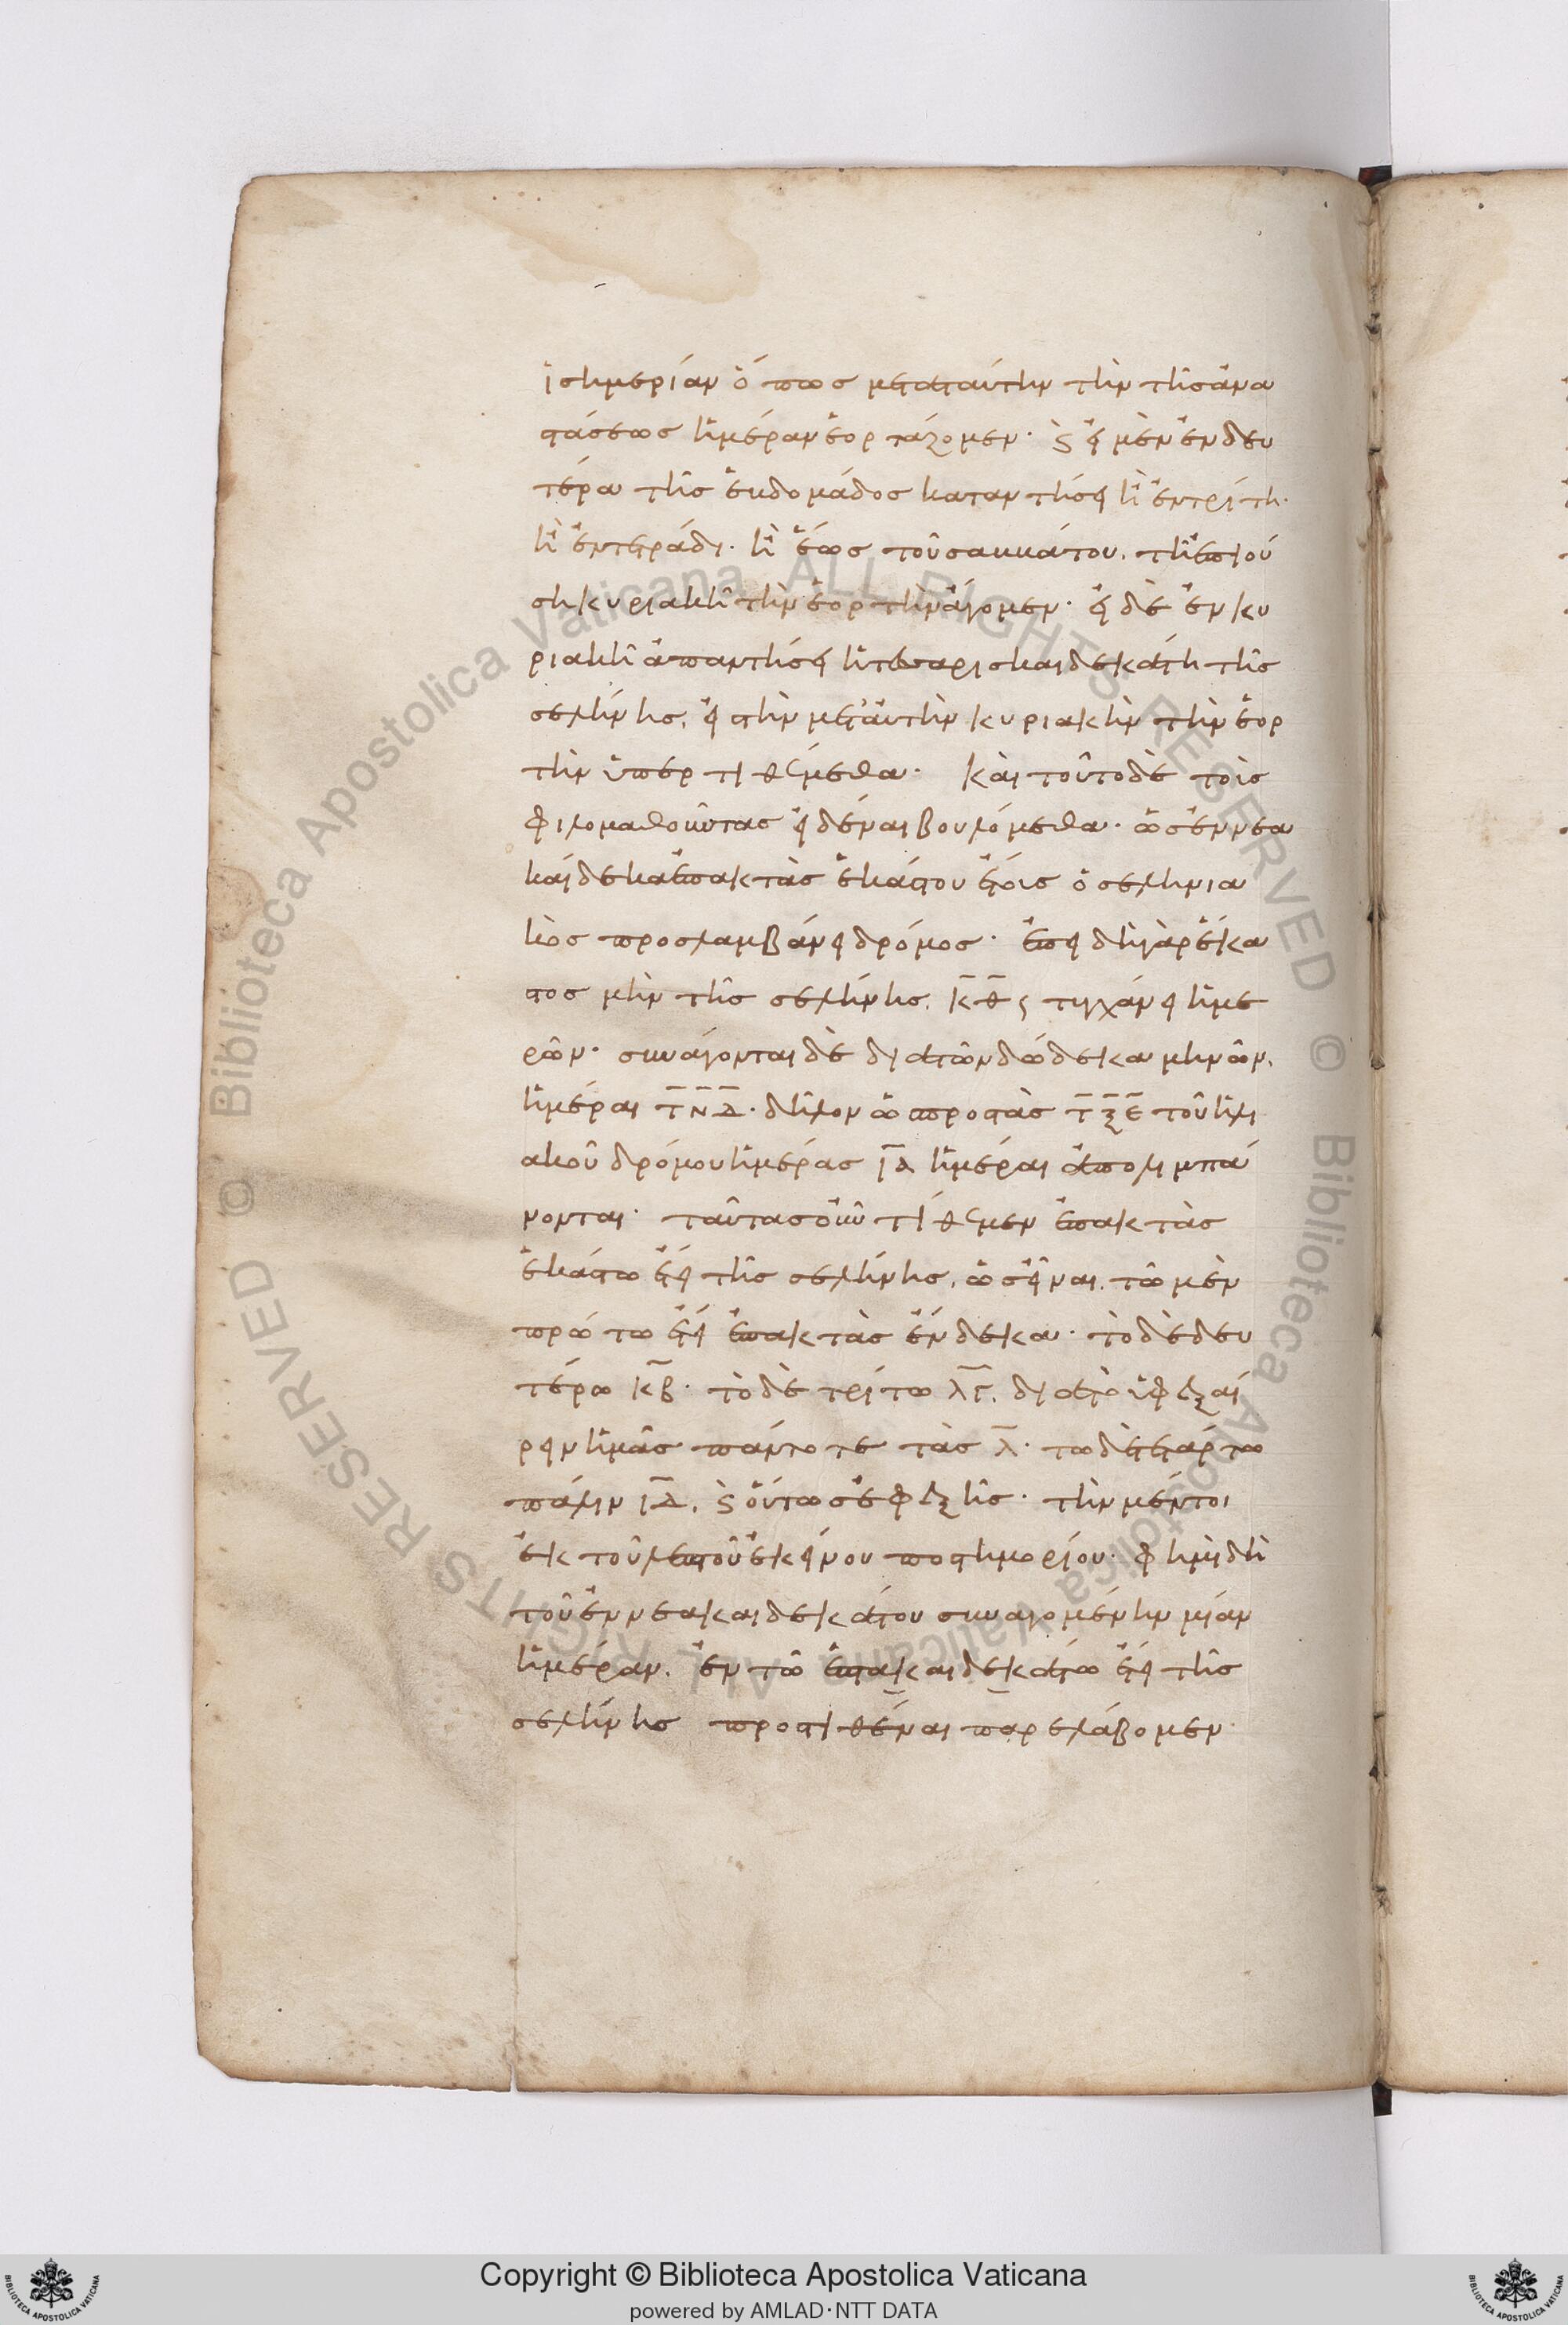 ἰσημερίαν ὅπως μετὰ ταύτην τὴν τῆς ἀνα
στάσεως ἡμέραν ἑορτάζομεν· καὶ εἰ μὲν ἐν δευ
τέρα τῆς ἑβδομάδος καταντήσει ἢ ἐν τρίτη·
ἢ ἐν τετράδι· ἢ ἕως τοῦ σαββάτου. τῆ ἐπιού
ση κυριακῆ τὴν ἑορτὴν ἄγομεν· εἰ δὲ ἐν κυ
ριακῆ ἀπαντήσει ἡ τεσσαρισκαιδεκάτη τῆς
σελήνης, εἰστὴν μετ' αὐτὴν κυριακὴν τὴν ἑορ
τὴν ὑπερτιθέμεθα· Καὶ τοῦτο δὲ τοὺς
φιλομαθοῦντας εἰδέναι βουλόμεθα· ὡς ἐννεα
καίδεκα ἐπακτὰς ἑκάστου ἔτους ὁ σεληνια
κὸς προσλαμβάνει δρόμος· ἐπειδὴ γὰρ ἕκα
στος μὴν τῆς σελήνης, κθ ς τυγχάνει ἡμε
ρῶν· συνάγονται δὲ διὰ τῶν δώδεκα μηνῶν,
ἡμέραι τνδ· δῆλον ὡς πρὸς τὰς τξε τοῦ ἡλι
ακοῦ δρόμου ἡμέρας ια ἡμέραι ἀπολιμπά
νονται· ταύτας οὖν τίθεμεν ἐπακτὰς
ἑκάστω ἔτει τῆς σελήνης, ὡς εἶναι, τῶ μὲν
πρώτω ἔτει ἐπακτὰς ἕνδεκα· τὸ δὲ δευ
τέρω κβ· τὸ δὲ τρίτω λγ, διὰ τὸ ὑφεξαί
ρειν ἡμᾶς πάντοτε τὰς λ· τῶ δὲ τετάρτω
πάλιν ιδ, καὶ οὕτως ἐφεξῆς· τὴν μέντοι
ἐκ τοῦ λεπτοῦ ἐκείνου ποστημορίου· φημὶ δὴ
τοῦ ἐννεακαιδεκάτου συναγομένην μίαν
ἡμέραν, ἐν τῶ ἑπτακαιδεκάτω ἔτει τῆς
σελήνης προστιθέναι παρελάβομεν·
Copyright © Biblioteca Apostolica Vaticana
powered by AMLAD·NTT DATA